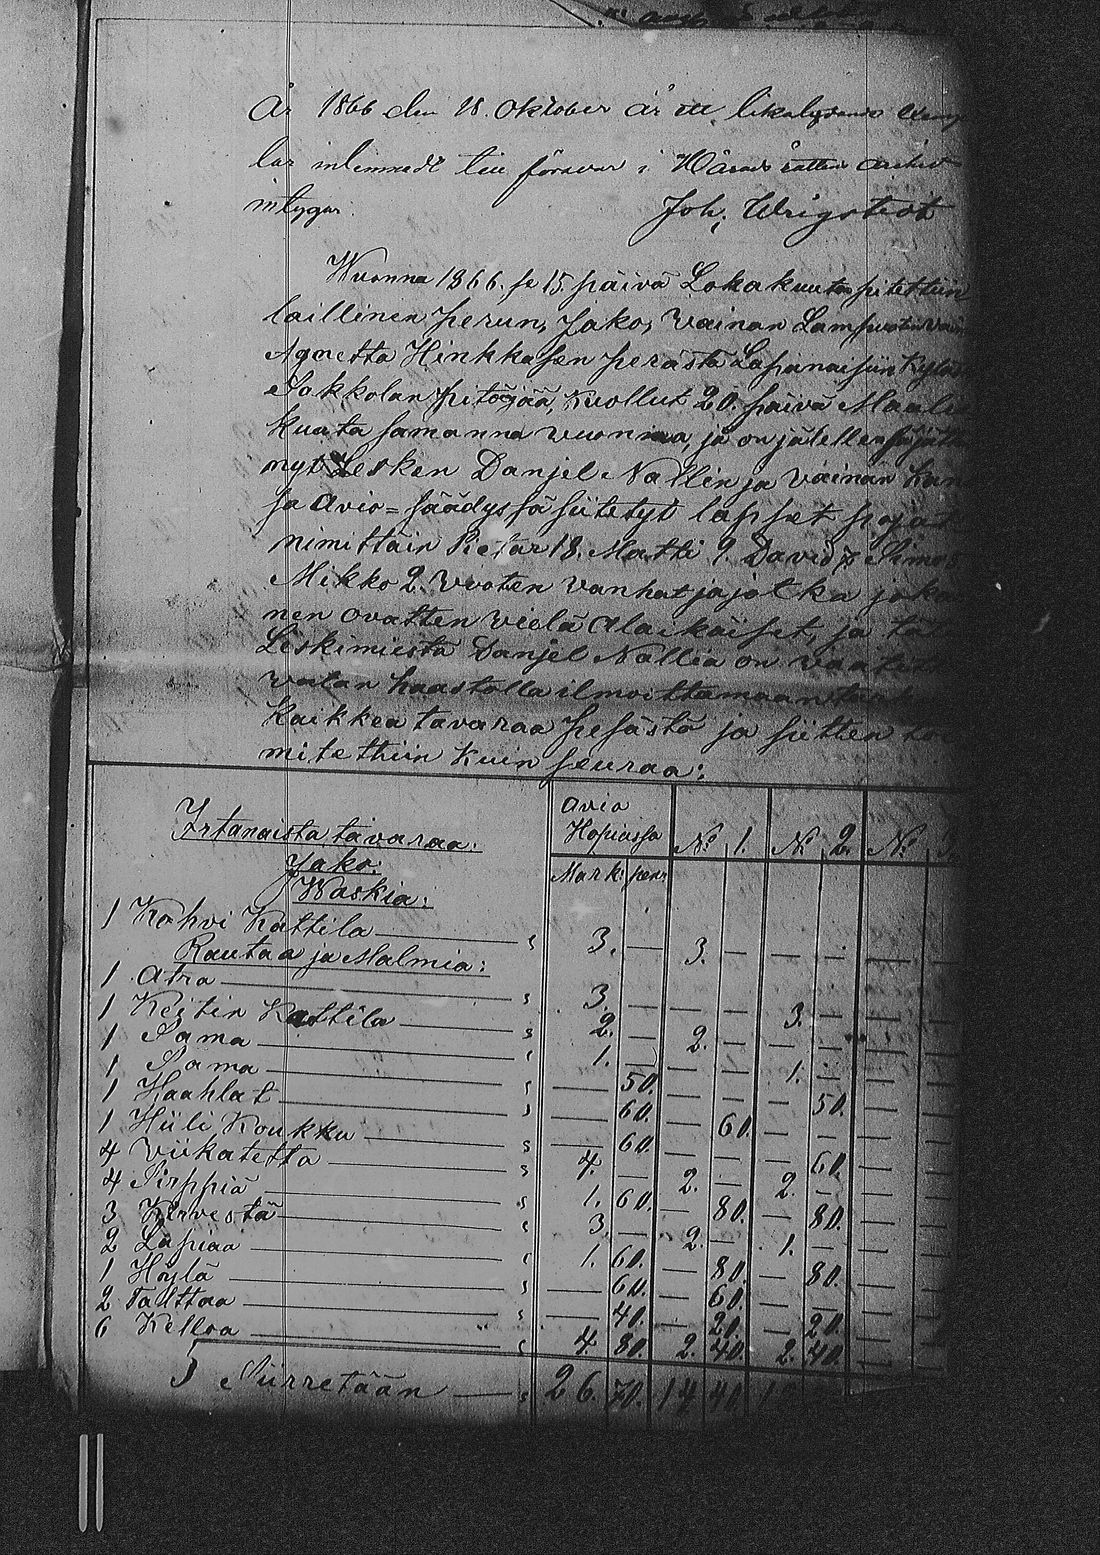 År 1866 den 18. Oktober är ett likalydande
lar inlemnadt till förvar i Härads rättens archiv
intygar. Joh. Wrigstedt
Wuonna 1866. se 15. päivä Lokakuuta pitettiin
laillinen perun, Jako, Vainan Lampuotin
Agnetta Hinkkasen perästä Lapinaisiin Kylän
Sakkolan pitäjää, Kuollut 20. päivä Maalis
kuuta samanna vuonna, ja on jälellensä jättä
nyt Lesken Danjel Nallin ja vainan Kan
sa Avio=säädyssä siitetyt lapset pojat
nimittäin Pietar 18. Matti 9. David 7 Simo 5
Mikko 2. Vuoten vanhat ja jotka joka
nen ovatten vielä Alaikäiset, ja
Leskimiestä Danjel Nallia on vaatittu
valan haastolla ilmoittamaan
Kaikkea tavaraa pesästä ja sitten toi
mitethiin Kuin seuraa:
Irtanaista tavaraa: Avio Hopiassa No 1. No 2. No 3.
Jako: Mark: pen:
Waskia:
1 Kahvi Kattila — s 3. — 3. — — —
Rautaa ja Malmia:
1 Atra — s 3. — — — 3. —
1 Keitin Kattila — s 2. — 2. — — —
1 Sama — s 1. — — — 1. —
1 Sama — s — 50. — — — 50.
1 Haahlat — s — 60. — 60. — —
1 Hiili Koukku — s — 60. — — — 60.
4 Viikatetta — s 4. — 2. — 2. —
4 Sirppiä — s 1. 60. — 80. — 80.
3 Kirvestä — s 3. — 2. — 1. —
2 Lapiaa — s 1. 60. — 80. — 80.
1 Höylä — s — 60. — 60. — —
2 Talttaa — s — 40. — 20. — 20.
6 Kelloa — s 4. 80. 2. 40. 2. 40.
Siirretään — s 26. 70. 14 40.